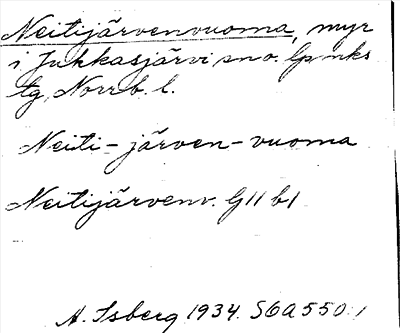 Neitijärvenvuoma, myr
i Jukkasjärvi sn o. lpmks
tg, Norrb. l.
Neiti-järven-vuoma
Neitijärvenv. G11 b1
A. Isberg 1934. S6A550